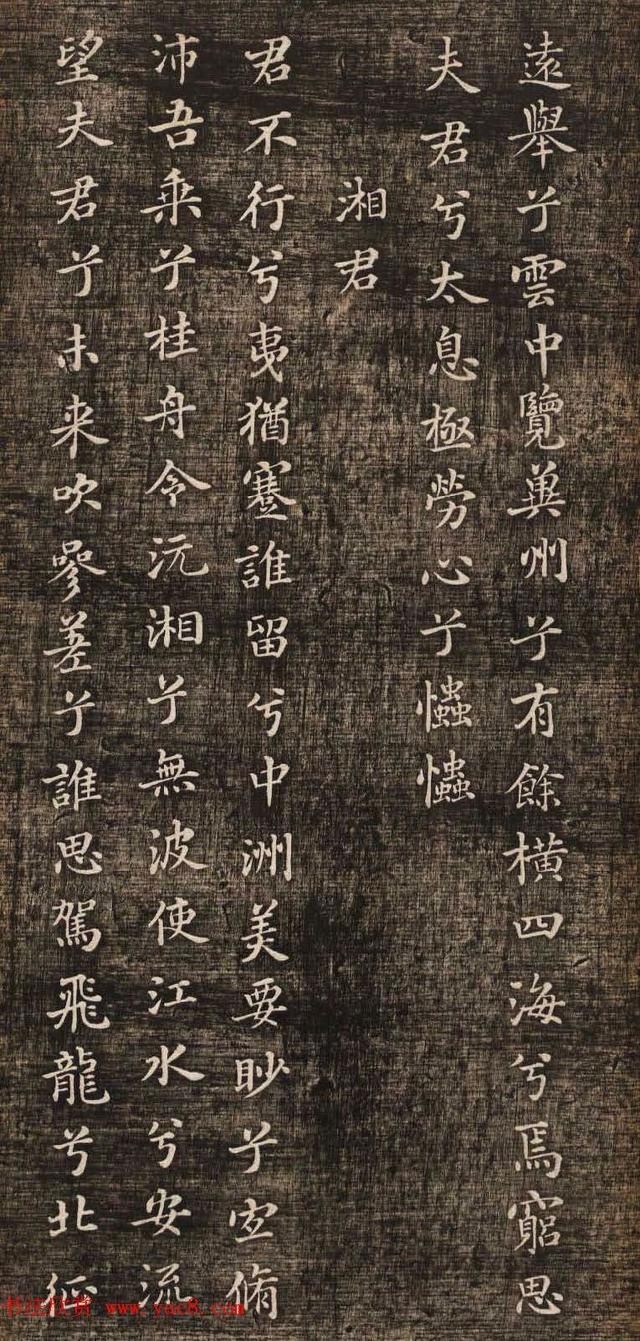 遠舉兮雲中覽兾州兮有餘橫四海兮焉窮思
夫君兮太息極勞心兮忡忡
湘君
君不行兮夷猶蹇誰留兮中洲美要眇兮宜脩
沛吾乗兮桂舟令沅湘兮無波使江水兮安流
望夫君兮未来吹參差兮誰思駕飛龍兮北征
www.yac8.com